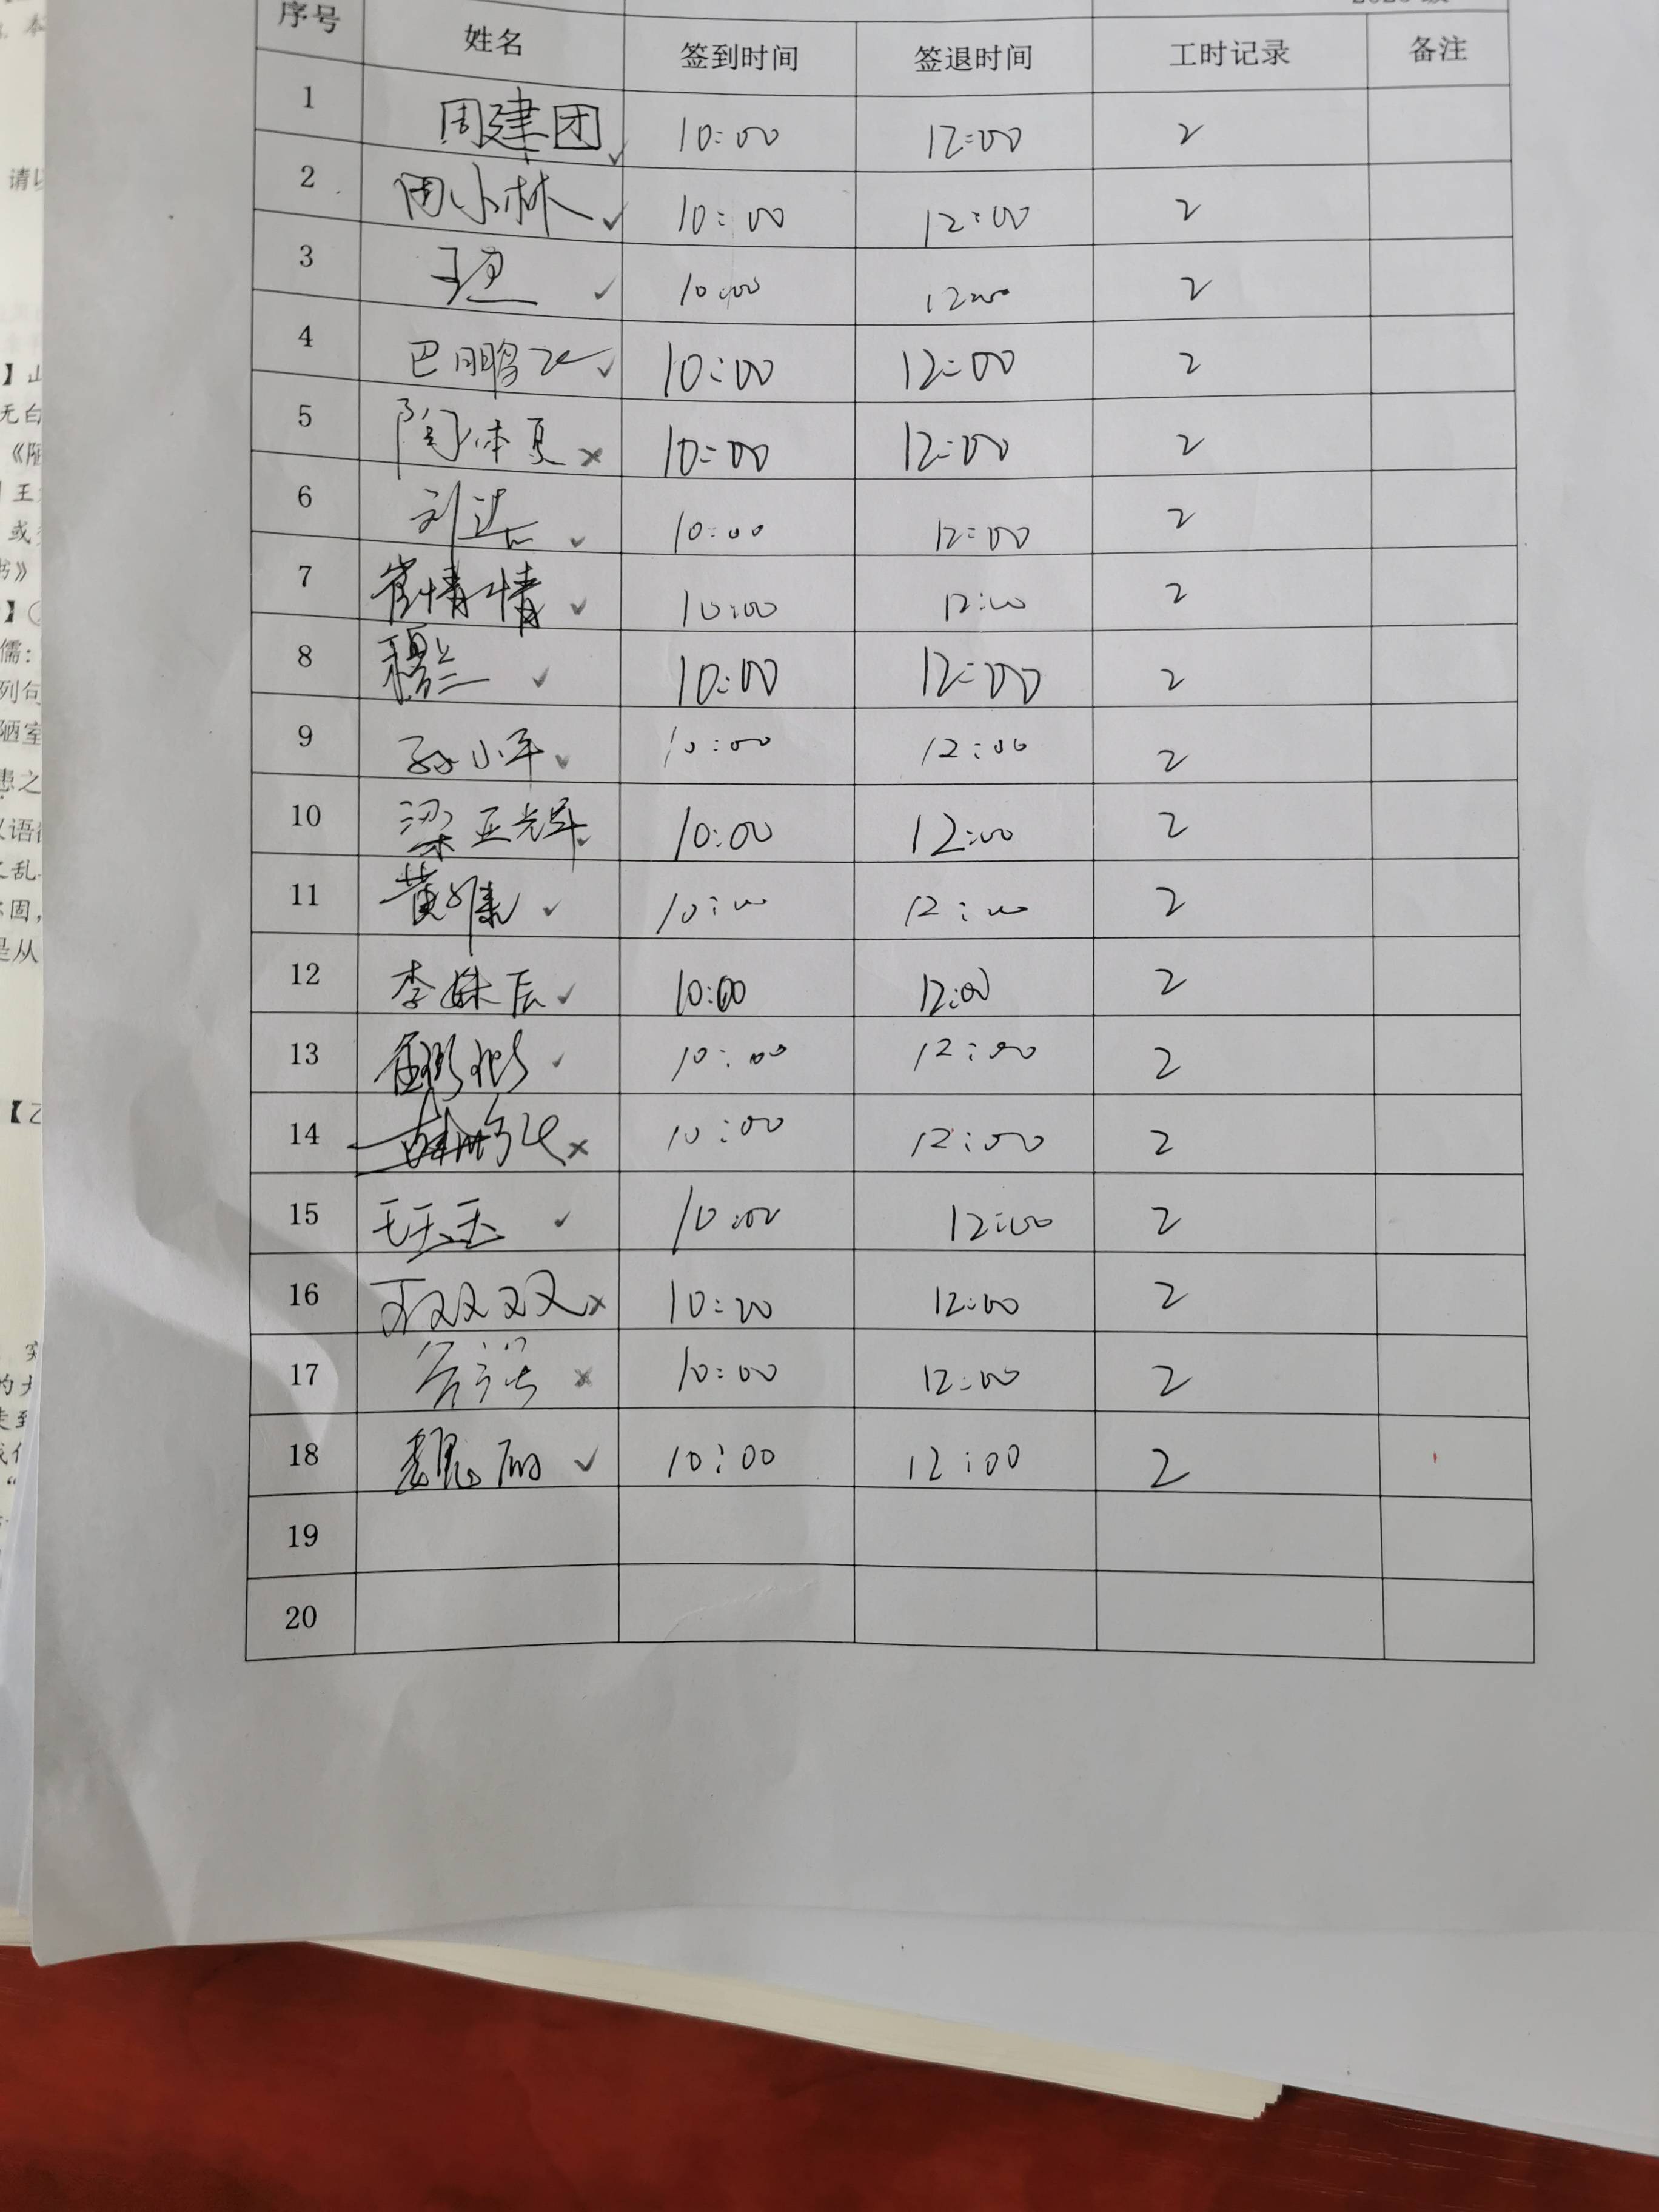 序号 姓名 签到时间 签退时间 工时记录 备注
1 周建团 ✓ 10:00 12:00 2
2 周小林 ✓ 10:00 12:00 2
3 ✓ 10:00 12:00 2
4 巴鹏飞 ✓ 10:00 12:00 2
5 陶体夏 × 10:00 12:00 2
6 刘 ✓ 10:00 12:00 2
7 崔情情 ✓ 10:00 12:00 2
8 穆兰 ✓ 10:00 12:00 2
9 孙小平 ✓ 10:00 12:00 2
10 梁亚辉 ✓ 10:00 12:00 2
11 黄维 ✓ 10:00 12:00 2
12 李姝辰 ✓ 10:00 12:00 2
13 ✓ 10:00 12:00 2
14 × 10:00 12:00 2
15 王玉玉 ✓ 10:00 12:00 2
16 双双 × 10:20 12:00 2
17 × 10:00 12:00 2
18 魏丽 ✓ 10:00 12:00 2
19
20
请
】山
无白
《陋
王
或
书》
儒：
列句
陋室
患之
汉语
乱
固，
是从
【乙